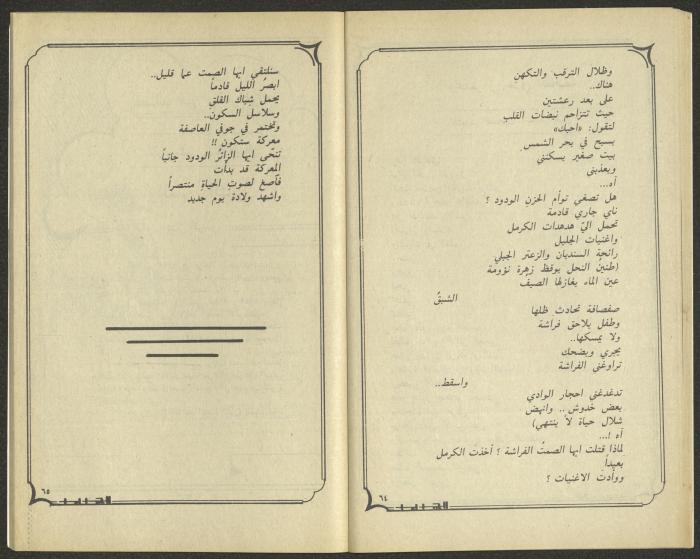 وظلال الترقب والتكهن
هناك..
على بعد رعشتين
حيث تتزاحم نبضات القلب
لتقول: «احبك»
يسبح في بحر الشمس
بيت صغير يسكنني
ويعذبني
آه...
هل تصغي توأم الحزن الودود ؟
ناي جاري قادمة
تحمل اليّ هدهدات الكرمل
واغنيات الجليل
رائحة السنديان والزعتر الجبلي
(طنين النحل يوقظ زهرة نؤومة
عين الماء يغازلها الصيف
الشبقُ
صفصافة تحادث ظلها
وطفل يلاحق فراشة
ولا يمسكها..
يجري ويضحك
تراوغني الفراشة
واسقط..
تدغدغني احجار الوادي
بعض خدوش .. وانهض
شلال حياة لا ينتهي)
آه !...
لماذا قتلت ايها الصمتُ الفراشة ؟ أخذت الكرمل
بعيداً
ووأدت الاغنيات ؟
٦٤
سنلتقي ايها الصمت عما قليل..
ابصرُ الليل قادماً
يحمل شباك القلق
وسلاسل السكون..
وتختمر في جوفي العاصفة
معركة ستكون !!
تنحّى ايها الزائرُ الودود جانباً
المعركة قد بدأت
فأصغ لصوتِ الحياةِ منتصراً
واشهد ولادة يوم جديد
٦٥